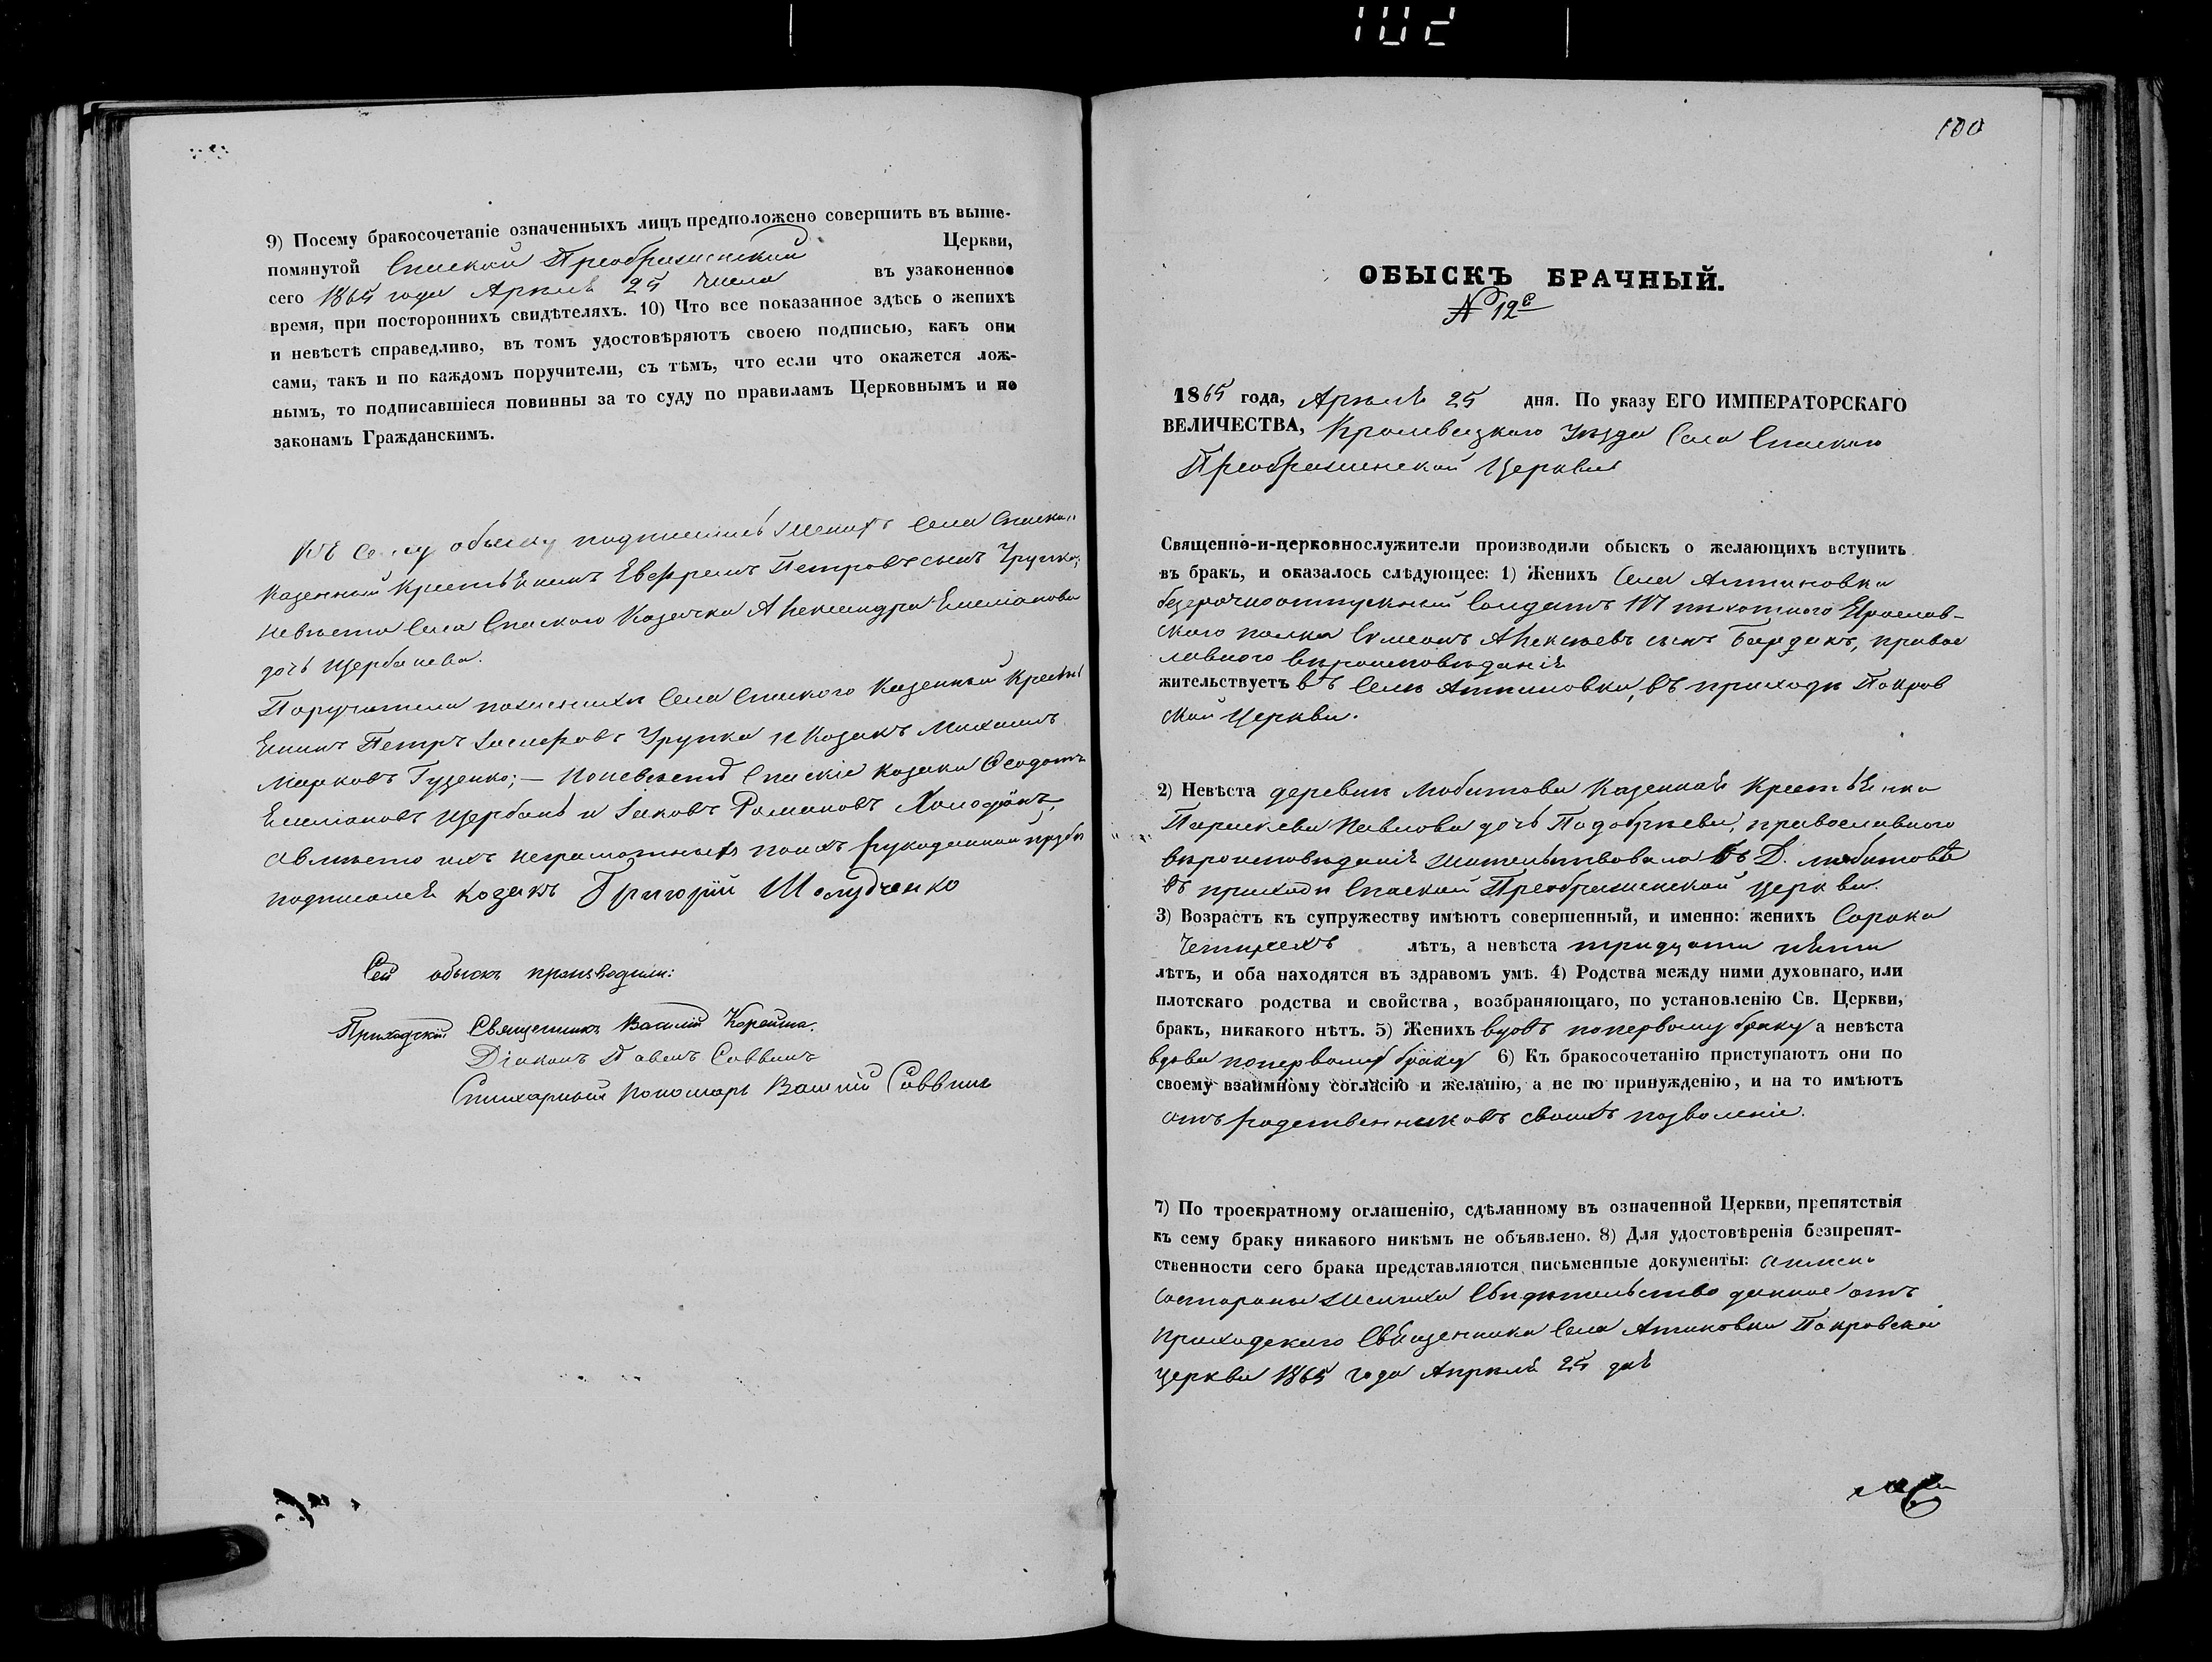 102
9) Посему бракосочетаніе означенныхъ лицъ предположено совершить въ выше-
помянутой Спаской Преображенской Церкви,
сего 1865 года Апрѣля 25 числа въ узаконенное
время, при постороннихъ свидѣтеляхъ. 10) Что все показанное здѣсь о женихѣ
и невѣстѣ справедливо, въ томъ удостовѣряютъ своею подписью, какъ они
сами, такъ и по каждомъ поручители, съ тѣмъ, что если что окажется лож-
нымъ, то подписавшіеся повинны за то суду по правиламъ Церковнымъ и по
законамъ Гражданскимъ.
Къ сему обыску подписались Женихъ Села Спаска
Казенный Крестьянинъ Евфремъ Петровъ сынъ Урупка;
невѣста Села Спаского Козачка Александра Емеліанова
дочь Щербанева.
Поручители поженихѣ Села Спаского Казенный Кресть
янинъ Петръ Урупка и Козакъ Михаилъ
Марковъ Гузенко; — поневѣстѣ Спаскіе козаки Феодотъ
Емеліановъ Щербань и Іаковъ Романовъ Холодонъ,
авместо ихъ неграмотныхъ поихъ рукоданной прозбѣ
подписался козакъ Григорій Шолудченко
Сей обыскъ производили:
Приходскій Священникъ Василій Корейша.
Діаконъ Павелъ Саввинъ
Стихарный Пономарь Василій Саввинъ
100
ОБЫСКЪ БРАЧНЫЙ.
№ 12й
1865 года, Апрѣля 25 дня. По указу ЕГО ИМПЕРАТОРСКАГО
ВЕЛИЧЕСТВА, Кролевецкого Уѣзда Села Спаского
Преображенской Церкви
Священно-и-церковнослужители производили обыскъ о желающихъ вступить
въ бракъ, и оказалось слѣдующее: 1) Женихъ Села Антиновки
безсрочноотпускный Солдатъ пихотного Ярослав-
ского полка Симеонъ Алексѣевъ сынъ Бардакъ, правос
лавного вѣроисповѣданія
жительствуетъ въ Селѣ Антиновки, въ приходѣ Покров
ской Церкви.
2) Невѣста деревни Любитова Казенная Крестьянка
Параскева Павлова дочь Подобрѣева, православного
вѣроисповѣданія жительствовала въ Д. любитовѣ
въ приходѣ Спаской Преображенской церкви.
3) Возрастъ къ супружеству имѣютъ совершенный, и именно: женихъ Сорока
Четирехъ лѣтъ, а невѣста тридцати пяти
лѣтъ, и оба находятся въ здравомъ умѣ. 4) Родства между ними духовнаго, или
плотскаго родства и свойства, возбраняющаго, по установленію Св. Церкви,
бракъ, никакого нѣтъ. 5) Женихъ вдовъ попервому браку а невѣста
вдова попервому браку 6) Къ бракосочетанію приступаютъ они по
своему взаимному согласію и желанію, а не по принужденію, и на то имѣютъ
отъ родственниковъ своихъ позволеніе.
7) По троекратному оглашенію, сдѣланному въ означенной Церкви, препятствія
къ сему браку никакого никѣмъ не объявлено. 8) Для удостовѣренія безпрепят-
ственности сего брака представляются письменные документы: а имен
состороны Жениха Свидѣтельство данное отъ
приходского Священника Села Антиновки Покровской
церкви 1865 года Апрѣля 25 дня